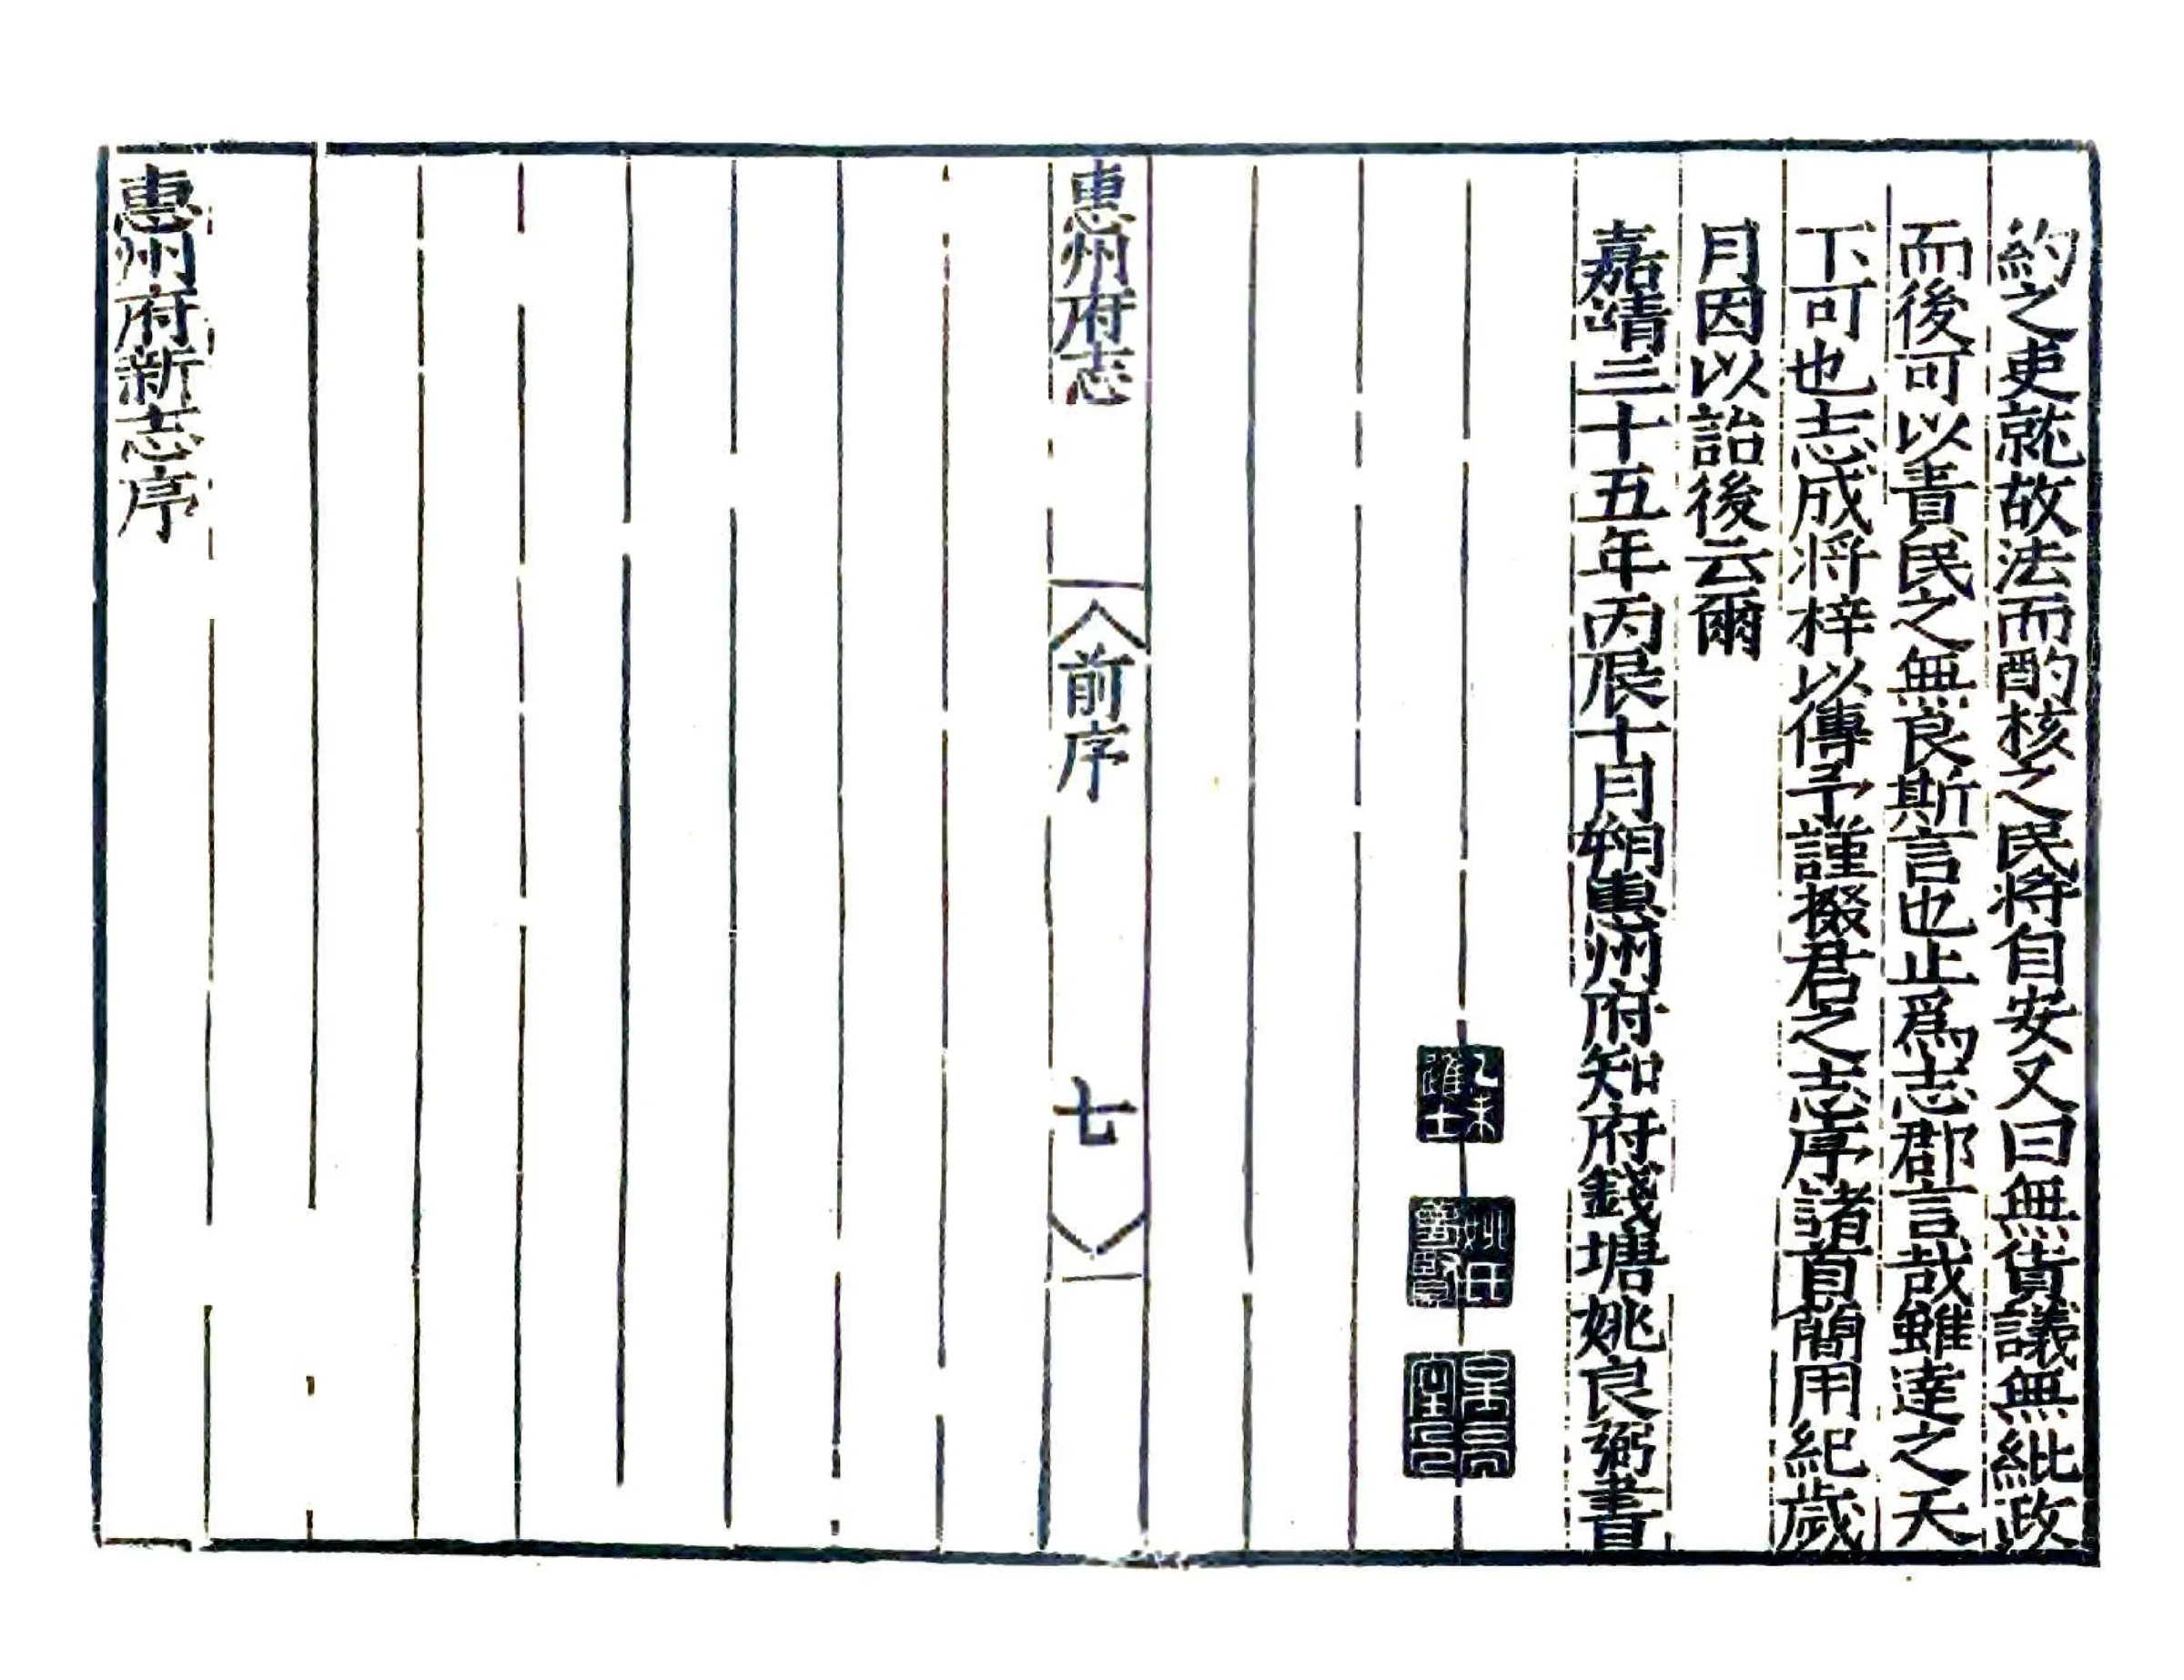 約之吏就故法而酌核之民将自安又曰無貨議無紕政
而後可以責民之無良斯言也止爲志郡言哉雖達之天
下可也志成将梓以傳予謹掇君之志序諸首簡用紀歲
月因以詒後云爾
嘉靖三十五年丙辰十月朔惠州府知府錢塘姚良弼書
惠州府志
前序
七
惠州府新志序